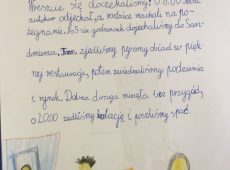 Wreszcie się doczekaliśmy! O 8.00 nasz
autokar odjechał, a rodzice machali na po-
żegnanie. Po 5-iu godzinach dojechaliśmy do San-
domierza. Tam zjedliśmy pyszny obiad w pięk-
nej restauracji, potem zwiedzaliśmy podziemia
i rynek. Dalsza droga minęła bez przygód,
o 20.00 zjedliśmy kolację i poszliśmy spać.